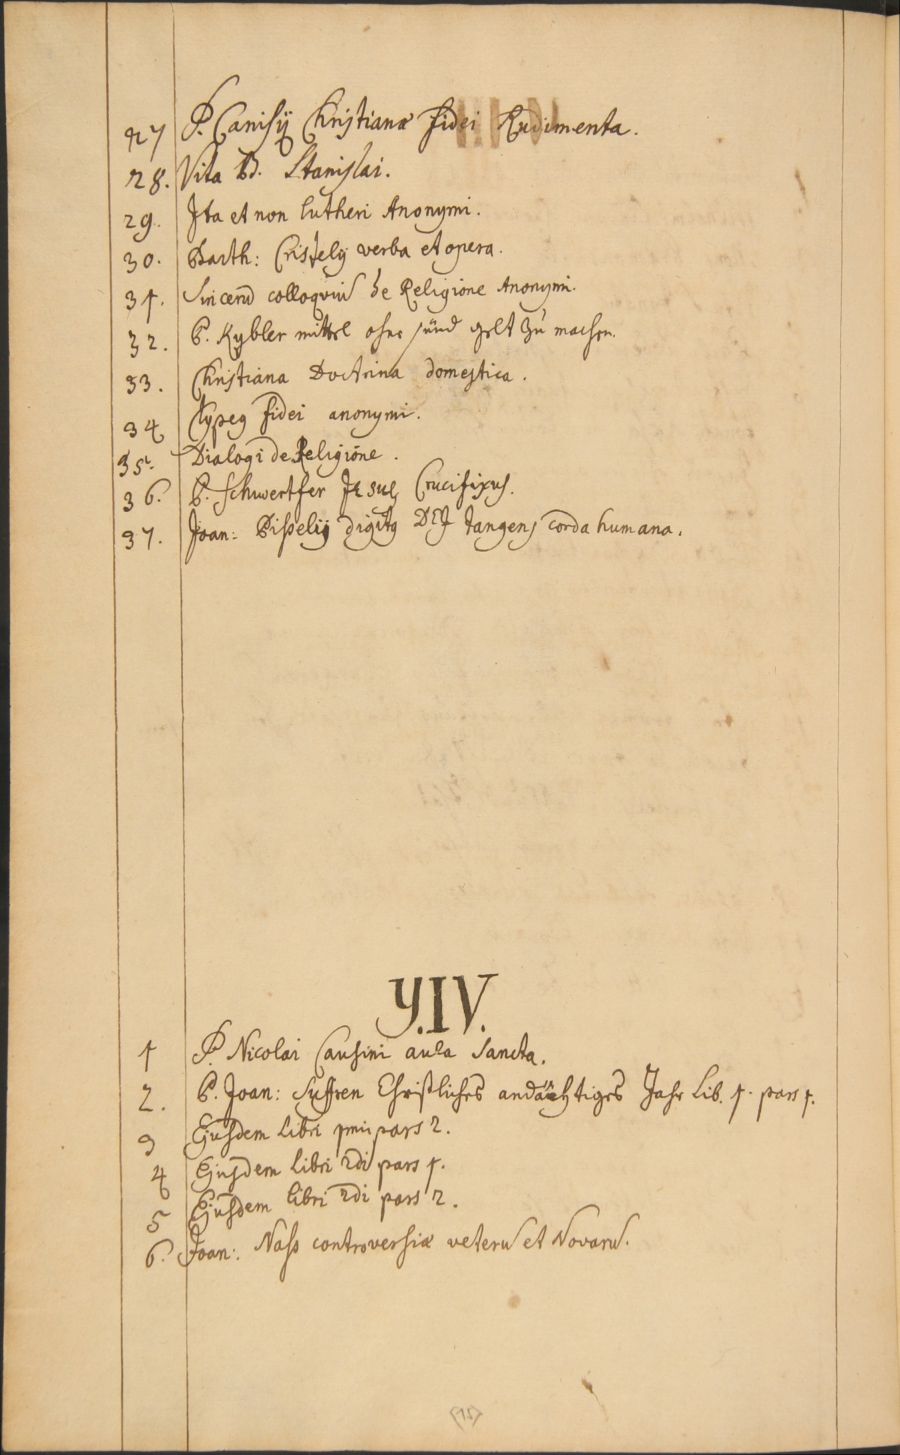 27 P. Canisÿ Christianæ fidei Rudimenta.
28. Vita B. Stanislai.
29. Ita et non lutheri Anonymi.
30. Barth: Cristelÿ verba et opera.
31. colloqviũ de Religione Anonymi.
32. P. Kybler mittel ohne sünd gelt zu machen.
33. Christiana Doctrina domestica.
34 Clypeg fidei anonymi.
35. Dialogi de Religione.
36. P. Schwertfer Jesus Crucifixus.
37. Joan: Bisselÿ digitg DEI tangens corda humana.
Y.IV.
1 P. Nicolai Causini aula Sancta.
2. P. Joan: Suffren Christliches andächtiges Jahr Lib. 1. pars 1.
3 Ejusdem Libri pars 2.
4 Ejusdem libri 2di pars 1.
5 Ejusdem libri 2di pars 2.
6. Joan: Nass controversiæ veterũ et Novarũ.
(15)